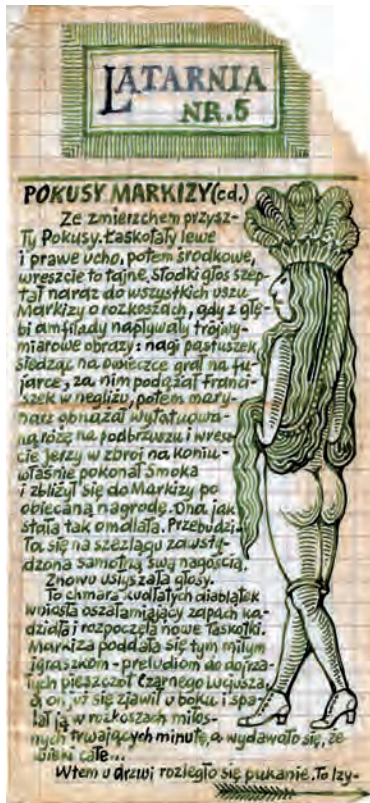 LATARNIA
NR.5
POKUSY MARKIZY (cd.)
Ze zmierzchem przysz-
ły Pokusy. Łaskotały lewe
i prawe ucho, potem środkowe,
wreszcie to tajne. Słodki głos szep-
tał naraz do wszystkich uszu
Markizy o rozkoszach, gdy z głę-
bi amfilady napływały trójwy-
miarowe obrazy: nagi pastuszek,
siedząc na owieczce grał na fu-
jarce, za nim podążał Franci-
szek w negliżu, potem mary-
narz obnażał wytatuowa-
ną różę na podbrzuszu i wresz-
cie Jerzy w zbroi na koniu-
właśnie pokonał Smoka
i zbliżył się do Markizy po
obiecaną nagrodę. Ona jak
stała tak omdlała. Przebudzi-
ła się na szezlągu zawsty-
dzona samotną swą nagością.
Znowu usłyszała głosy.
To chmara kudłatych diablątek
wniosła oszałamiający zapach ka-
dzidła i rozpoczęła nowe łaskotki.
Markiza poddała się tym miłym
igraszkom - preludiom do dojrza-
łych pieszczot Czarnego Lucjusza,
a on, już się zjawił u boku i spa-
lał ją w rozkoszach miłos-
nych trwających minutę, a wydawało się, że
wieki całe...
Wtem u drzwi rozległo się pukanie. To Izy-